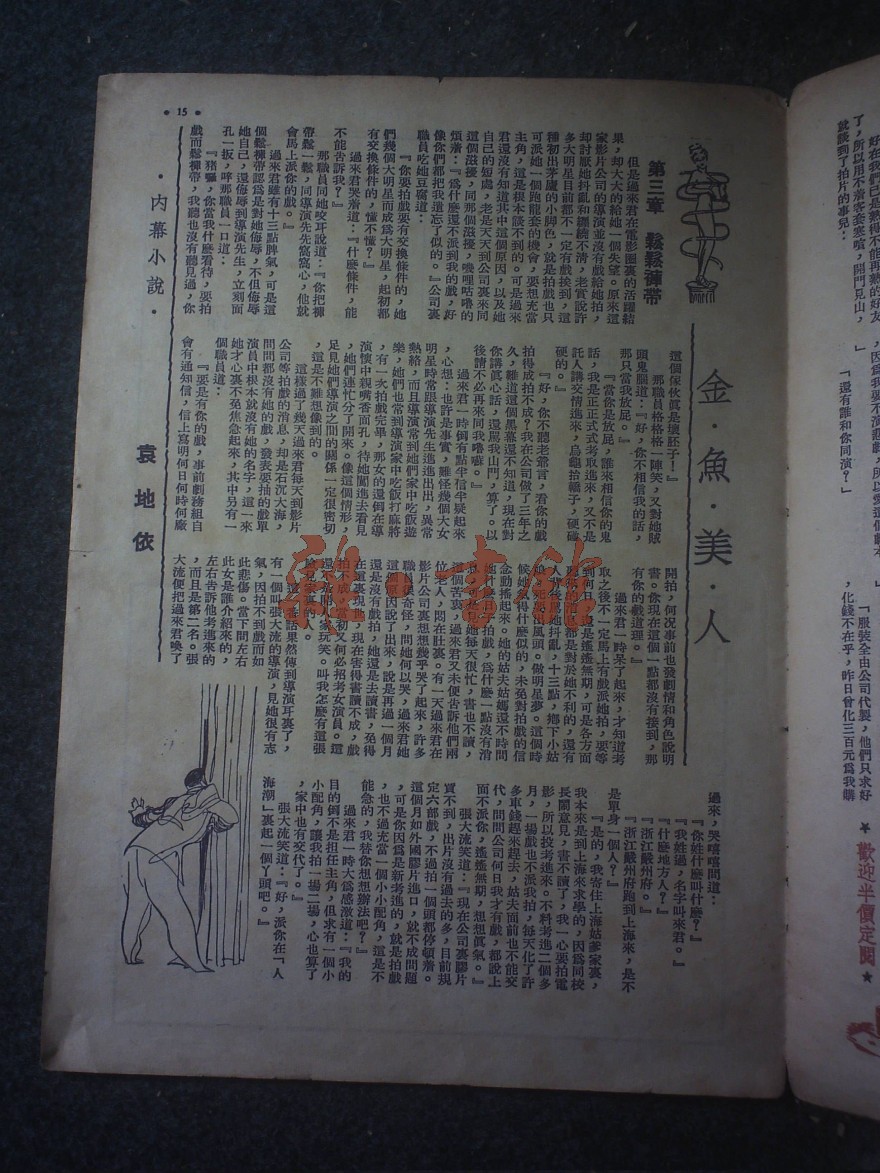 • 15 •
金・魚・美・人
・內幕小說・
袁地依
第三章 鬆鬆褲帶
但是過來君在電影圈裏的活躍結
果，却大大的給她一個失望。原來這
家影片公司的導演並沒有戲給她拍，
却討厭她抖亂和繃繃不清，老實說許
多大明星目前都不一定有戲挨到，這
種初出茅廬的小脚色，就是拍戲也只
可派她一個跑龍套的機會，要想充當
主角，這是根本談不到的。可是過來
君還沒有知道其中這個原因，以及她
自己的短處，老是天天到公司裏來同
這個滋擾，同那個滋擾，嘰哩咕嚕的
煩着：『為什麼還不派到我的戲，好
像你們都把我遺忘了似的。』公司裏
職員吃她豆腐道：
『你要拍戲要有交換條件的，她
們幾個大明星而成為大明星，起初都
有交換條件的，懂不懂？』
過來君哭着道：『什麼條件，能
不能告訴我？』
那職員同她咬耳說道：『你把褲
帶鬆一鬆，同導演先先窩窩心，他就
會馬上派你的戲。』
過來君雖有十三點脾氣，可是這
個鬆褲帶認為是對她侮辱，不但侮辱
她自己，還侮辱到導演先生，立刻面
孔一扳，呸那職員一口道：
『猪玀，你當我什麼看待，要拍
戲而鬆褲帶，我聽也沒有聽見過，你
這個傢伙眞是壞坯子！』
那職員格格格一陣笑，又對她賊
頭鬼腦道：『好，你不相信我的話，
那只當我放屁。』
『當你是放屁，誰來相信你的鬼
話，我是正正式式考取進來，又不是
託人講交情進來，烏龜抬轎子，硬碰
硬的。』
『好，你不聽老爺言，看你的戲
拍得成拍不成？我在公司做了三年之
久，難道這個黑幕還不知道，現在對
你講眞心話，還罵我山門，算了。以
後請不必再來同我嚕囌。』
過來君一時倒有點半信半疑起來
，心想：也許是事實，難怪幾個大女
明星時常跟導演先生進進出出，異常
熱絡，而且導演常到她們家中吃飯遊
樂，她們也常到導演家中吃飯打麻將
，有一次拍戲完畢，那女的還倒在導
演懷中親嘴香面孔，待她闖進去看見
，她們連忙分了開來。像這個情形，
足見她們導演之間的關係一定很密切
，這是不難想像到的。
這樣過了幾天過來君每天到影片
公司等拍戲的消息，却是石沉大海，
問問都沒有她的戲，發表要拍的戲單
演員中根本就沒有她的名字，這一來
她才心裏不免焦急起來，其中另有一
個職員道：
『要是有你的戲，事前劇務組自
會有通知信，信上寫明何日何時何廠
開拍，何況事前也發劇情和角色說明
書。你現在這個一點都沒有接到，那
有你的戲道理。』
過來君一時呆了起來，才知道考
取之後不一定馬上有戲派她拍，要等
到何日，還是遙遙無期，可是各方面
人背後說她抖亂，十三點，鄉下小姑
候她說得什麼似的，未免對拍戲的信
念動搖起來。她的姑夫姑媽還不時問
她什麼日子拍戲，為什麼一點沒有消
這個苦衷，過來君又未便告訴他們兩
位老人，悶在肚裏。有一天過來君在
影片公司裏想想幾乎哭了起來，許多
職員很奇怪，問她何以哭，過來君她
這個原因說了出來，說是再過一個月
還是沒有戲拍，她還是去讀書，免得
在這裏現世，現在害得書讀不成，戲
拍不成，當初又何必招考女演員。這
還不是開人家玩笑。叫我怎麼有這張
臉見家裏的人。
這一番話果然傳到導演耳裏了，
有一個叫張大流的導演，見她很有志
氣，因拍不到戲而如
此悲傷。當下問左右
此女是誰介紹來的，
左右告訴他考進來的
，而且是第二名。張
大流便把過來君喚了
過來，哭嘻嘻問道：
『你姓什麼叫什麼？』
『我姓過，名字叫來君。』
『什麼地方人？』
『浙江嚴州府。』
『浙江嚴州府跑到上海來，是不
是單身一個人？』
『是的，我寄住上海姑爹家裏，
我本來是到上海來求學的，因為同校
長鬧意見，書不讀了，我一心要拍電
影，所以投考進來。不料考進二個多
月，一場戲也不派我拍，每天化了許
多車錢趕來趕去，姑夫面前也不能交
代，問問公司何日我才有戲，都說上
面不派你，遙遙無期，想想眞氣。』
張大流笑道：『現在公司裏膠片
買不到，出片沒有過去的多，目前規
定六部戲，不過拍一個頭都停頓着。
這個月如外國膠片進口，就不成問題
，可是你因為是新考進的，就是拍戲
，也不過充當一個小小配角，這是不
能急的，我替你想想辦法吧？』
過來君一時大為感激道：『我的
目的倒不是担任主角，但求有一個小
小配角，讓我拍一場二場，心也算了
，家中也有交代了。』
張大流笑道：『好，派你在「人
海潮」裏起一個丫頭吧。』
雜・書館
好在我們已是熟得不能再熟的好友
了，所以用不着客套寒喧，開門見山，
就談到了拍片的事兒：
「還有誰和你同演？」
「服裝全由公司代製，他們只求好
，化錢不在乎，昨日曾化三百元為我購
★歡迎半價定閱★